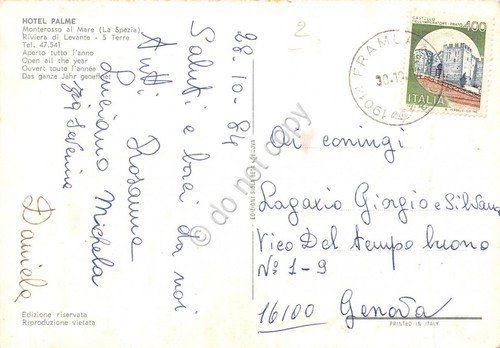 HOTEL PALME
Monterosso al Mare (La Spezia)
Riviera di Levante - 5 Terre
Tel. 47.541
Aperto tutto l'anno
Open all the year
Ouvert toute l'année
Das ganze Jahr geoeffnet
28-10-84
Saluti e baci da noi
tutti Rosanna
Luciano Michela
zia Severina
Daniela
Edizione riservata
Riproduzione vietata
2
CASTELLO
400
ITALIA
19014 FRAMURA
30.10
do not copy
Ai coniugi
Ragazio Giorgio e Silvana
Vico Del tempo buono
N° 1-9
16100 Genova
PRINTED IN ITALY